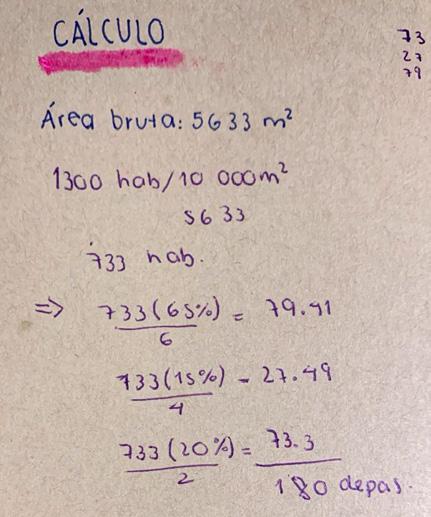 CÁLCULO
73
27
79
Área bruta: 5633 m²
1300 hab/10 000m²
5633
733 hab.
=> 733(65%) = 79.41
6
733(15%) = 27.49
4
733(20%) = 73.3
2
180 depas.